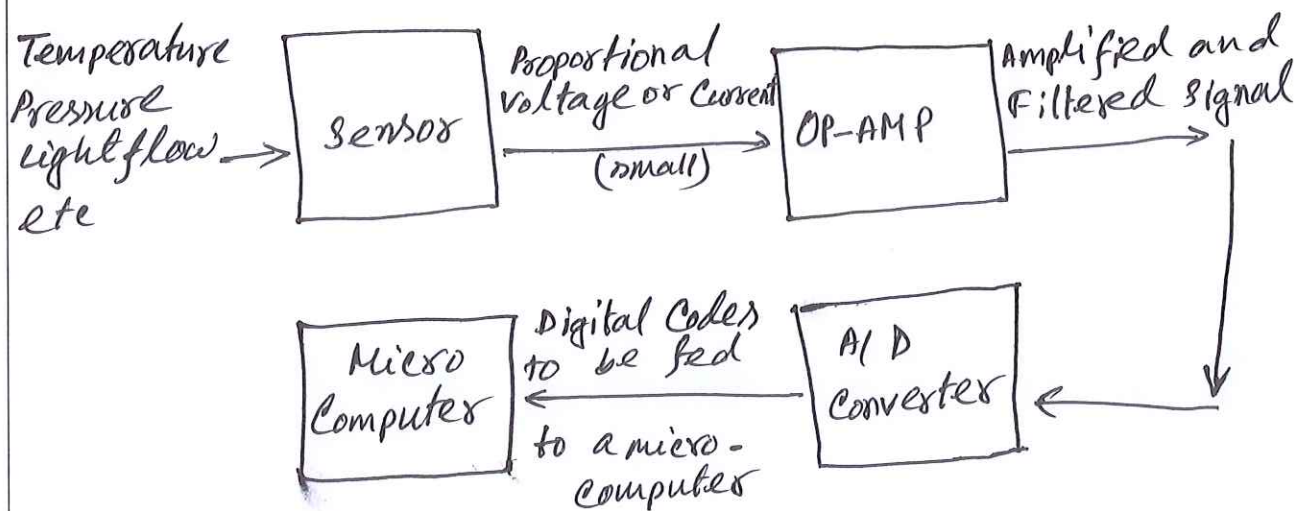 Temperature
Pressure
Light flow
etc
Sensor
Proportional
Voltage or Current
(small)
OP-AMP
Amplified and
Filtered Signal
A/D
Converter
Digital Codes
to be fed
to a micro-
computer
Micro
Computer